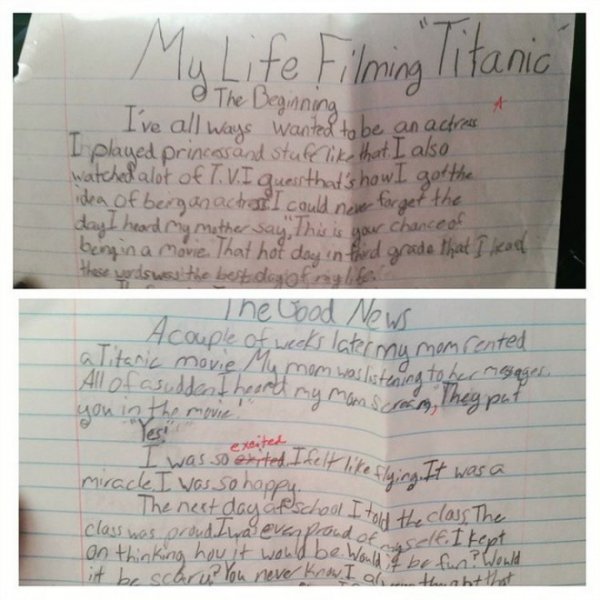 My Life Filming "Titanic"
The Beginning
A
I've all ways wanted to be an actress
I played princess and stuff like that. I also
watched alot of T.V. I guess that's how I got the
idea of being an actress. I could never forget the
day I heard my mother say, "This is your chance of
being in a movie. That hot day in third grade that I head
these words was the best day of my life!
The Good News
A couple of weeks later my mom rented
a Titanic movie. My mom was listening to her messages.
All of a sudden I heard my mom scream, "They put
you in the movie!"
"Yes!"
excited
I was so exited. I felt like flying. It was a
miracle I was so happy.
The next day at school I told the class. The
class was proud. I was even proud of myself. I kept
on thinking how it would be. Would it be fun? Would
it be scary? You never know. I thought that